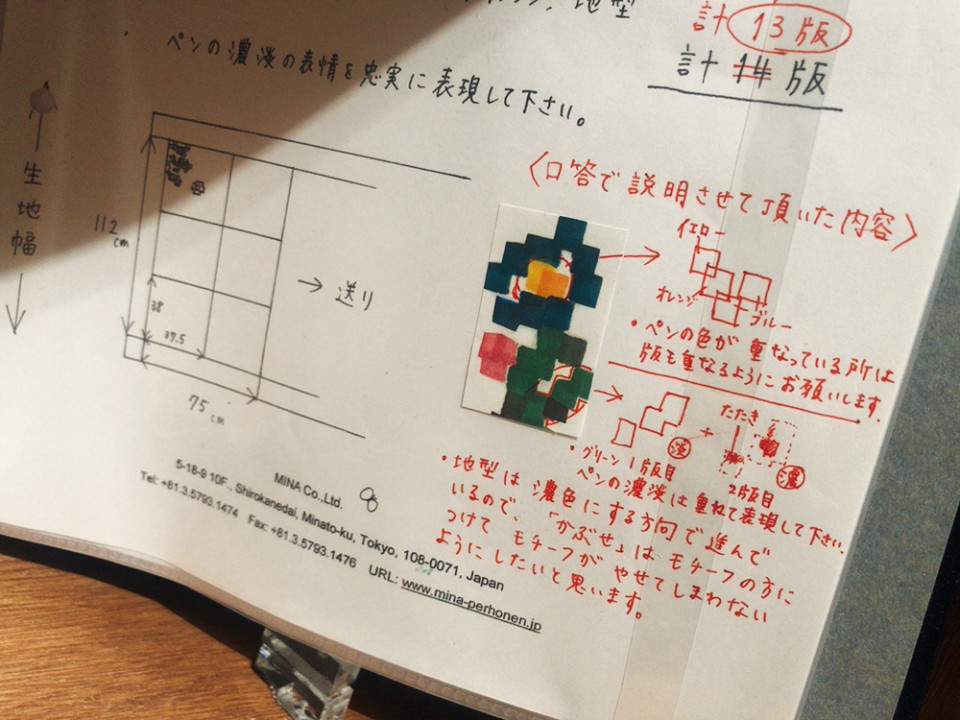 地型
計 13版
計 14 版
ペンの濃淡の表情を忠実に表現して下さい。
生地幅
112 cm
38
37.5
75 cm
→ 送り
〈口答で説明させて頂いた内容〉
イエロー
オレンジ
ブルー
・ペンの色が重なっている所は
版も重なるようにお願いします。
たたき
淡
+
濃
・グリーン1版目
2版目
ペンの濃淡は重ねて表現して下さい。
・地型は濃色にする方向で進んで
いるので、「かぶせ」はモチーフの方に
つけてモチーフがやせてしまわない
ようにしたいと思います。
MINA Co.,Ltd.
5-18-9 10F., Shirokanedai, Minato-ku, Tokyo, 108-0071, Japan
Tel: +81.3.5793.1474 Fax: +81.3.5793.1476 URL: www.mina-perhonen.jp